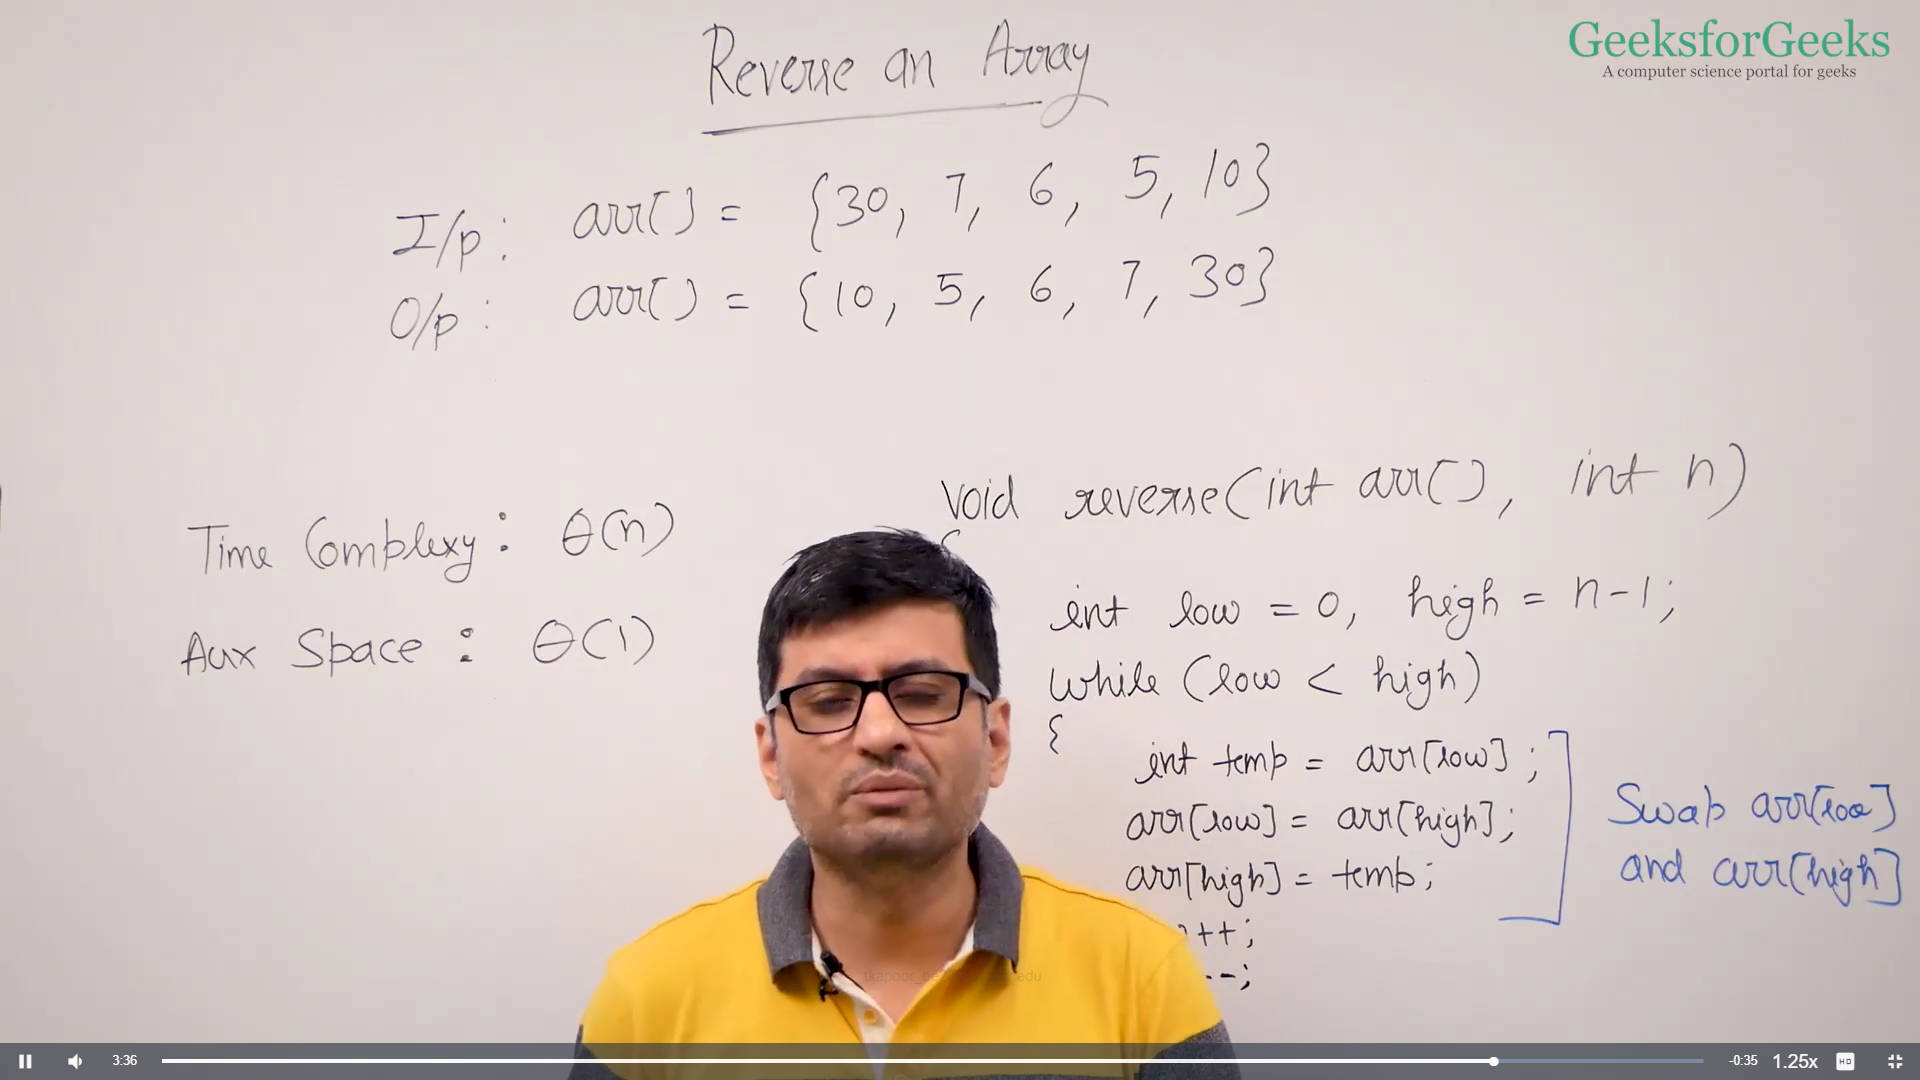 GeeksforGeeks
A computer science portal for geeks
Reverse an Array
I/p: arr[] = {30, 7, 6, 5, 10}
O/p: arr[] = {10, 5, 6, 7, 30}
Time Complexy : θ(n)
Aux Space : θ(1)
void reverse(int arr[], int n)
{
int low = 0, high = n-1;
while (low < high)
{
int temp = arr[low];
arr[low] = arr[high];
arr[high] = temp;
++;
--;
Swap arr[low]
and arr[high]
3:36
-0:35
1.25x
HD